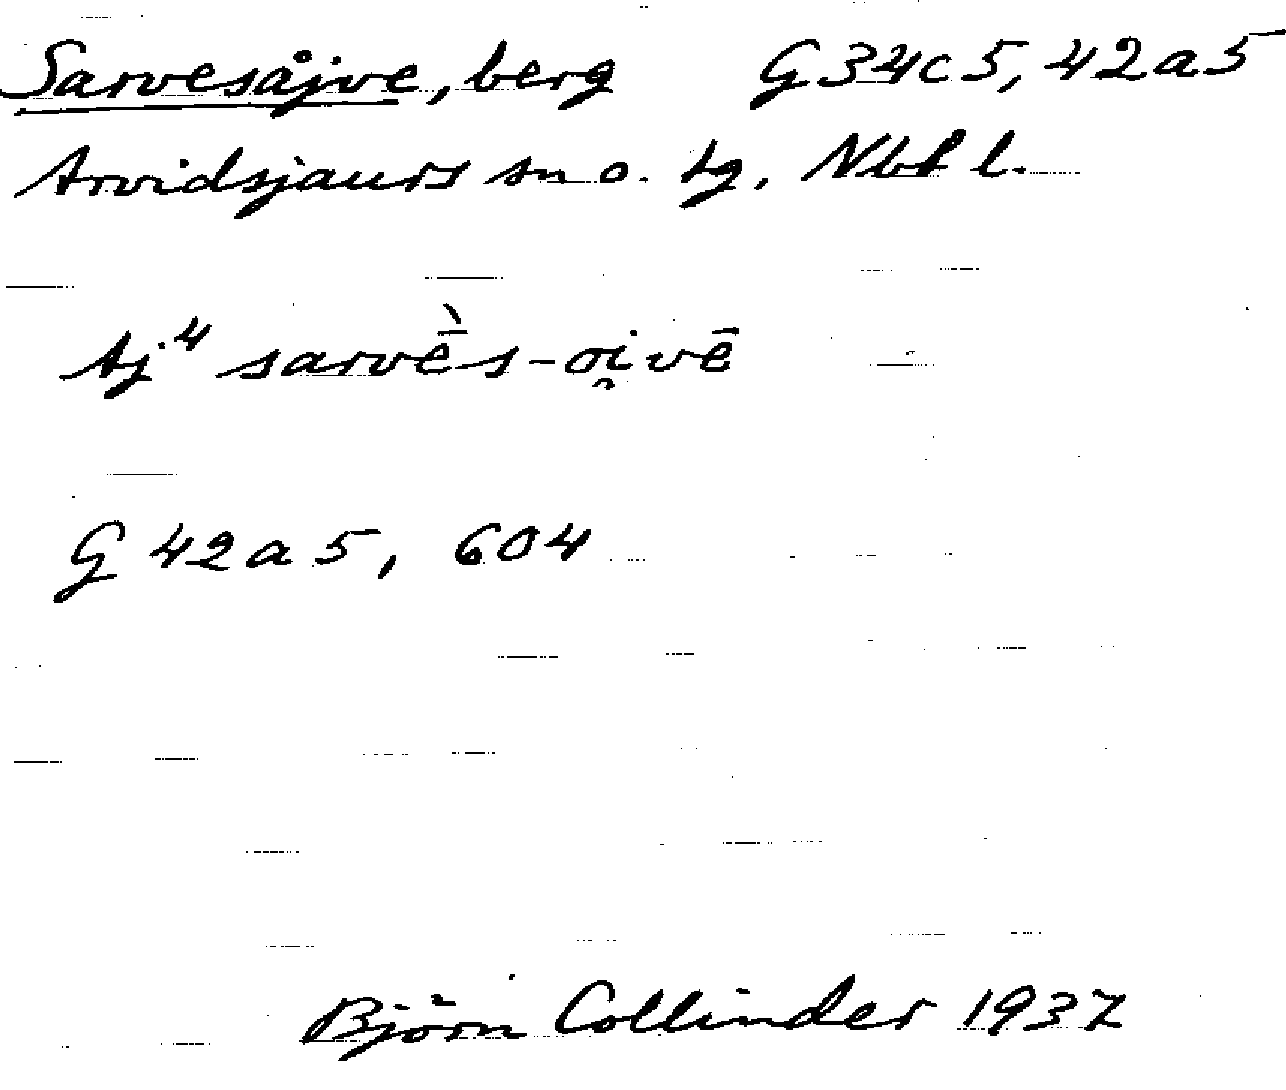 Sarvesåjve, berg G34c5, 42a5
Arvidsjaurs sn o. tg, Nbt l.
Aj⁴ sarvḕs-oi̯vē
G 42a5, 604
Björn Collinder 1937